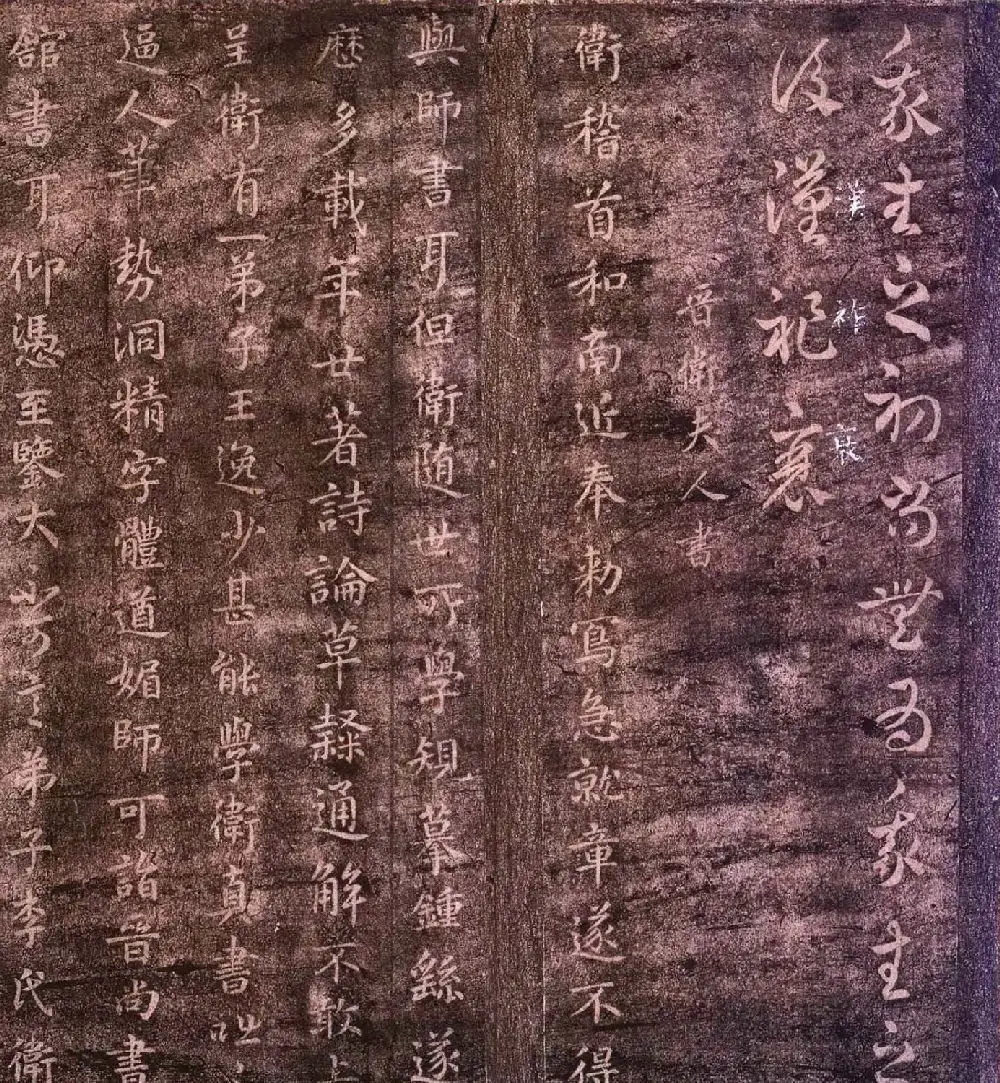 我生之初尚無為我生之
後漢祚衰
漢
祚
衰
晉衛夫人書
衛稽首和南近奉勅寫急就章遂不得
與師書耳但衛随世所學規摹鍾繇遂
歷多載年廿著詩論草隸通解不敢上
呈衛有一弟子王逸少甚能學衛真書咄
逼人筆勢洞精字體遒媚師可詣晉尚書
舘書耳仰憑至鑒大不可言弟子李氏衛